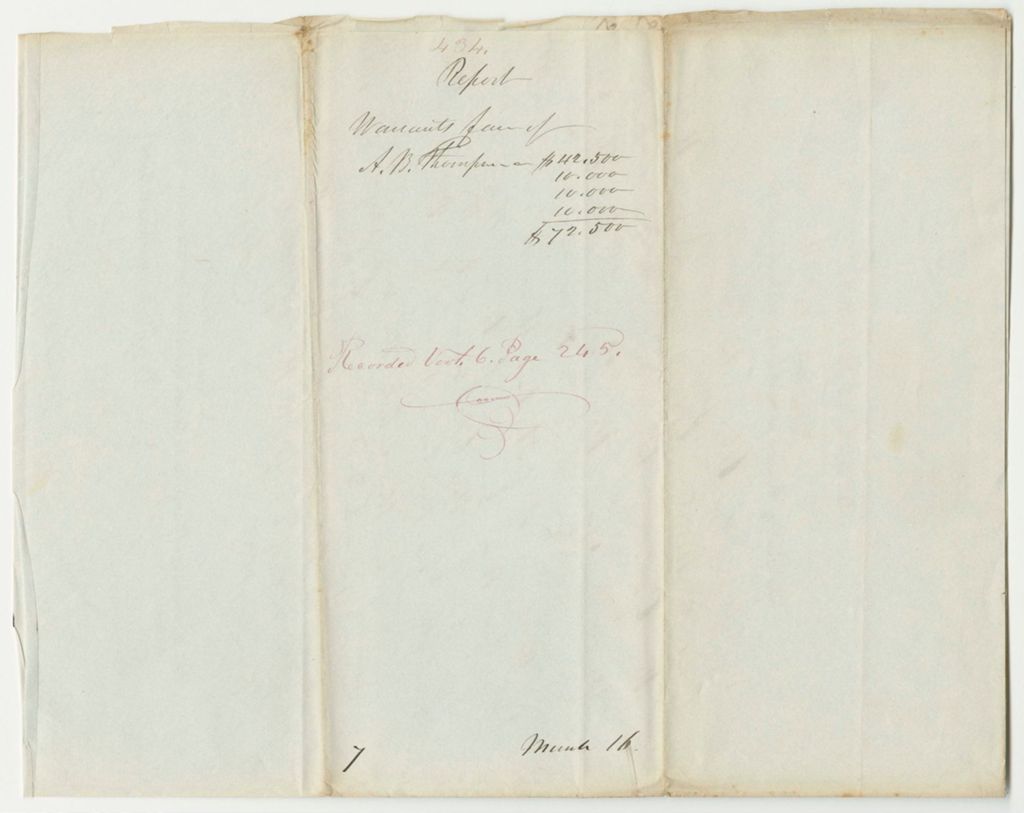 434.
Report
Warrants fav of
A. B. Thompson $42.500
10.000
10.000
10.000
$72.500
Recorded Vol. 6. Page 245.
7
March 16.